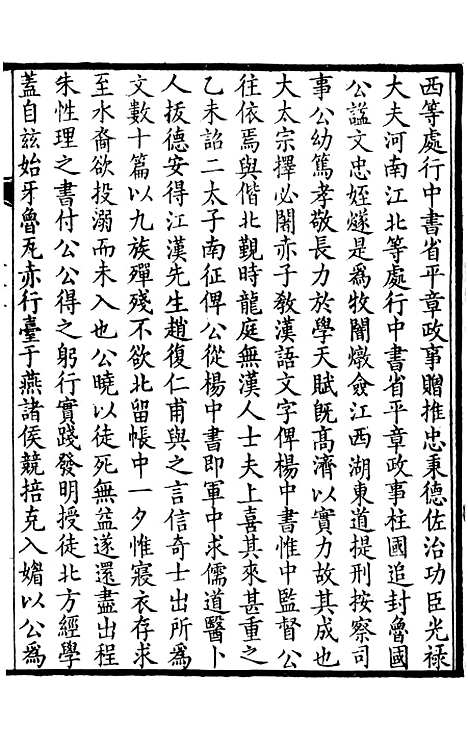 西等處行中書省平章政事贈推忠秉德佐治功臣光祿
大夫河南江北等處行中書省平章政事柱國追封魯國
公諡文忠姪燧是爲牧闇燉僉江西湖東道提刑按察司
事公幼篤孝敬長力於學天賦旣高濟以實力故其成也
大太宗擇必闍赤子敎漢語文字俾楊中書惟中監督公
往依焉與偕北覲時龍庭無漢人士夫上喜其來甚重之
乙未詔二太子南征俾公從楊中書即軍中求儒道醫卜
人拔德安得江漢先生趙復仁甫與之言信奇士出所爲
文數十篇以九族殫殘不欲北留帳中一夕惟寢衣存求
至水裔欲投溺而未入也公曉以徒死無益遂還盡出程
朱性理之書付公公得之躬行實踐發明授徒北方經學
蓋自兹始牙魯瓦赤行臺于燕諸侯競掊克入媚以公爲